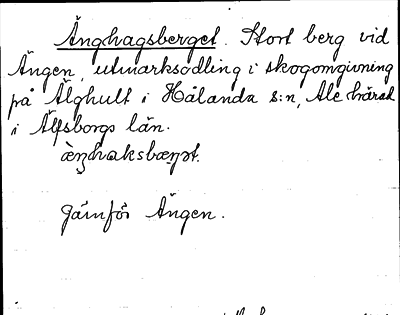 Änghagsberget. Stort berg vid
Ängen, utmarksodling i skogomgivning
på Älghult i Hålanda s:n, Ale härad
i Älfsborgs län.
Jämför Ängen.